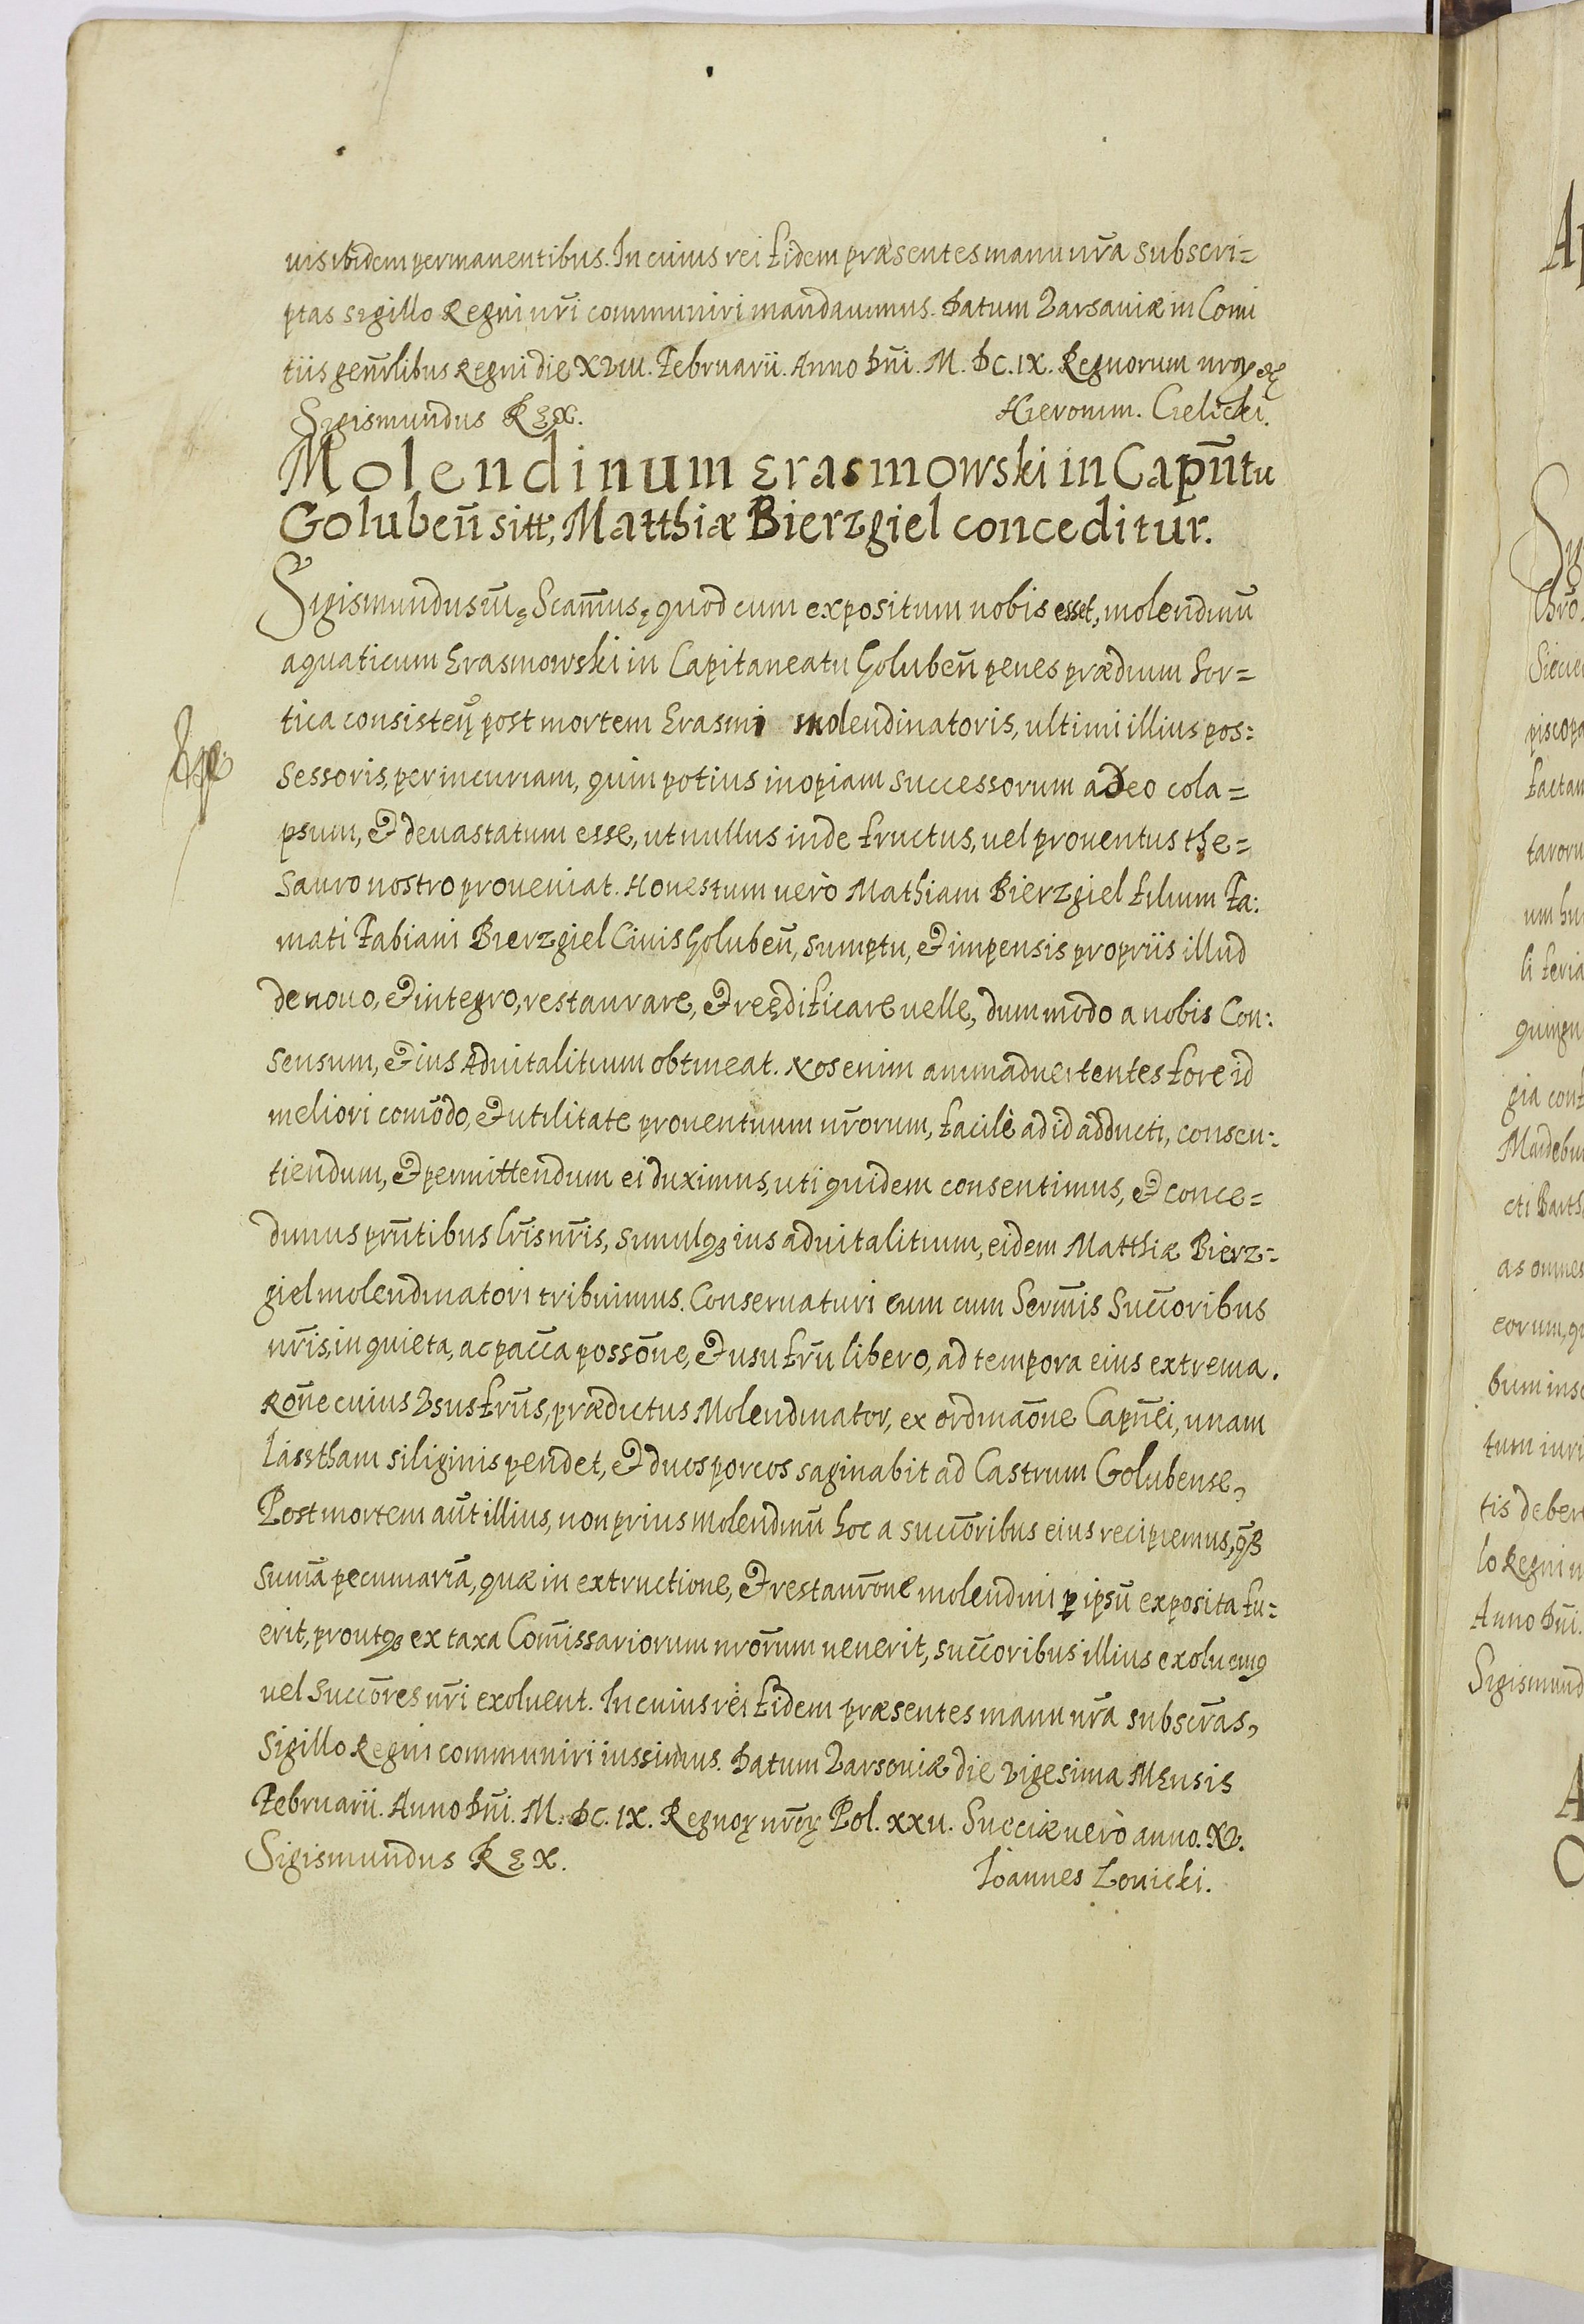 uis ibidem permanentibus. In cuius rei fidem præsentes manu nr̃a subscri=
ptas sigillo Regni nr̃i communiri mandauimus. Datum Varsauiæ in Comi
tiis genr̃libus Regni die XVIII. Februarii. Anno Dñi. M. DC. IX. Regnorum nrox etc
Sigismundus REX. Hieronim. Cielicki.
Molendinum Erasmowski in Capñtu
Golubeñ sitt, Matthiæ Bierzgiel conceditur.
Sigismundus III. Scamus, quod cum expositum nobis esset, molendinũ
aquaticum Erasmowski in Capitaneatu Golubeñ penes prædium for=
tica consisteñ post mortem Erasmi molendinatoris, ultimi illius pos=
sessoris, per incuriam, quin potius inopiam successorum adeo cola=
psum, & deuastatum esse, ut nullus inde fructus, uel prouentus the=
sauro nostro proueniat. Honestum uerò Mathiam Bierzgiel filium Fa:
mati Fabiani Bierzgiel Ciuis Golubeñ, sumptu, & impensis propriis illud
de nouo, & integro, restaurare, & reędificare uelle, dummodo a nobis Con:
sensum, & ius Aduitalitium obtineat. Nos enim animaduertentes fore id
meliori com̃odo, & utilitate prouentuum nr̃orum, facilè ad id adducti, consen:
tiendum, & permittendum ei duximus, uti quidem consentimus, & conce=
dimus prñtibus lr̃is nr̃is, simulq3 ius aduitalitium, eidem Matthiæ Bierz=
giel molendinatori tribuimus. Conseruaturi eum cum Serm̃is Succ̃oribus
nr̃is, in quieta, ac pac̃ca possõne, & usu fr̃u libero, ad tempora eius extrema.
Rõne cuius Vsusfrũs, prædictus Molendinator, ex ordinaõne Capñei, unam
lasstham siliginis pendet, & duos porcos saginabit ad Castrum Golubense,
Post mortem aũt illius, non prius molendinũ hoc a succ̃oribus eius recipiemus, q̃3
sum̃a pecuniaria, quæ in extructione, & restaurõne molendini p ipsũ exposita fu=
erit, proutq3 ex taxa Com̃issariorum nrõrum uenerit, succ̃oribus illius exoluemus
uel Succõres nr̃i exoluent. In cuius rei fidem præsentes manu nr̃a subscr̃as,
Sigillo Regni communiri iussimus. Datum Varsouiæ die vigesima MEnsis
Februarii. Anno Dñi. M. DC. IX. Regnoꝝ nr̃oꝝ Pol. XXII. Sueciæ uerò anno. XV.
Sigismundus REX. Ioannes Louicki.